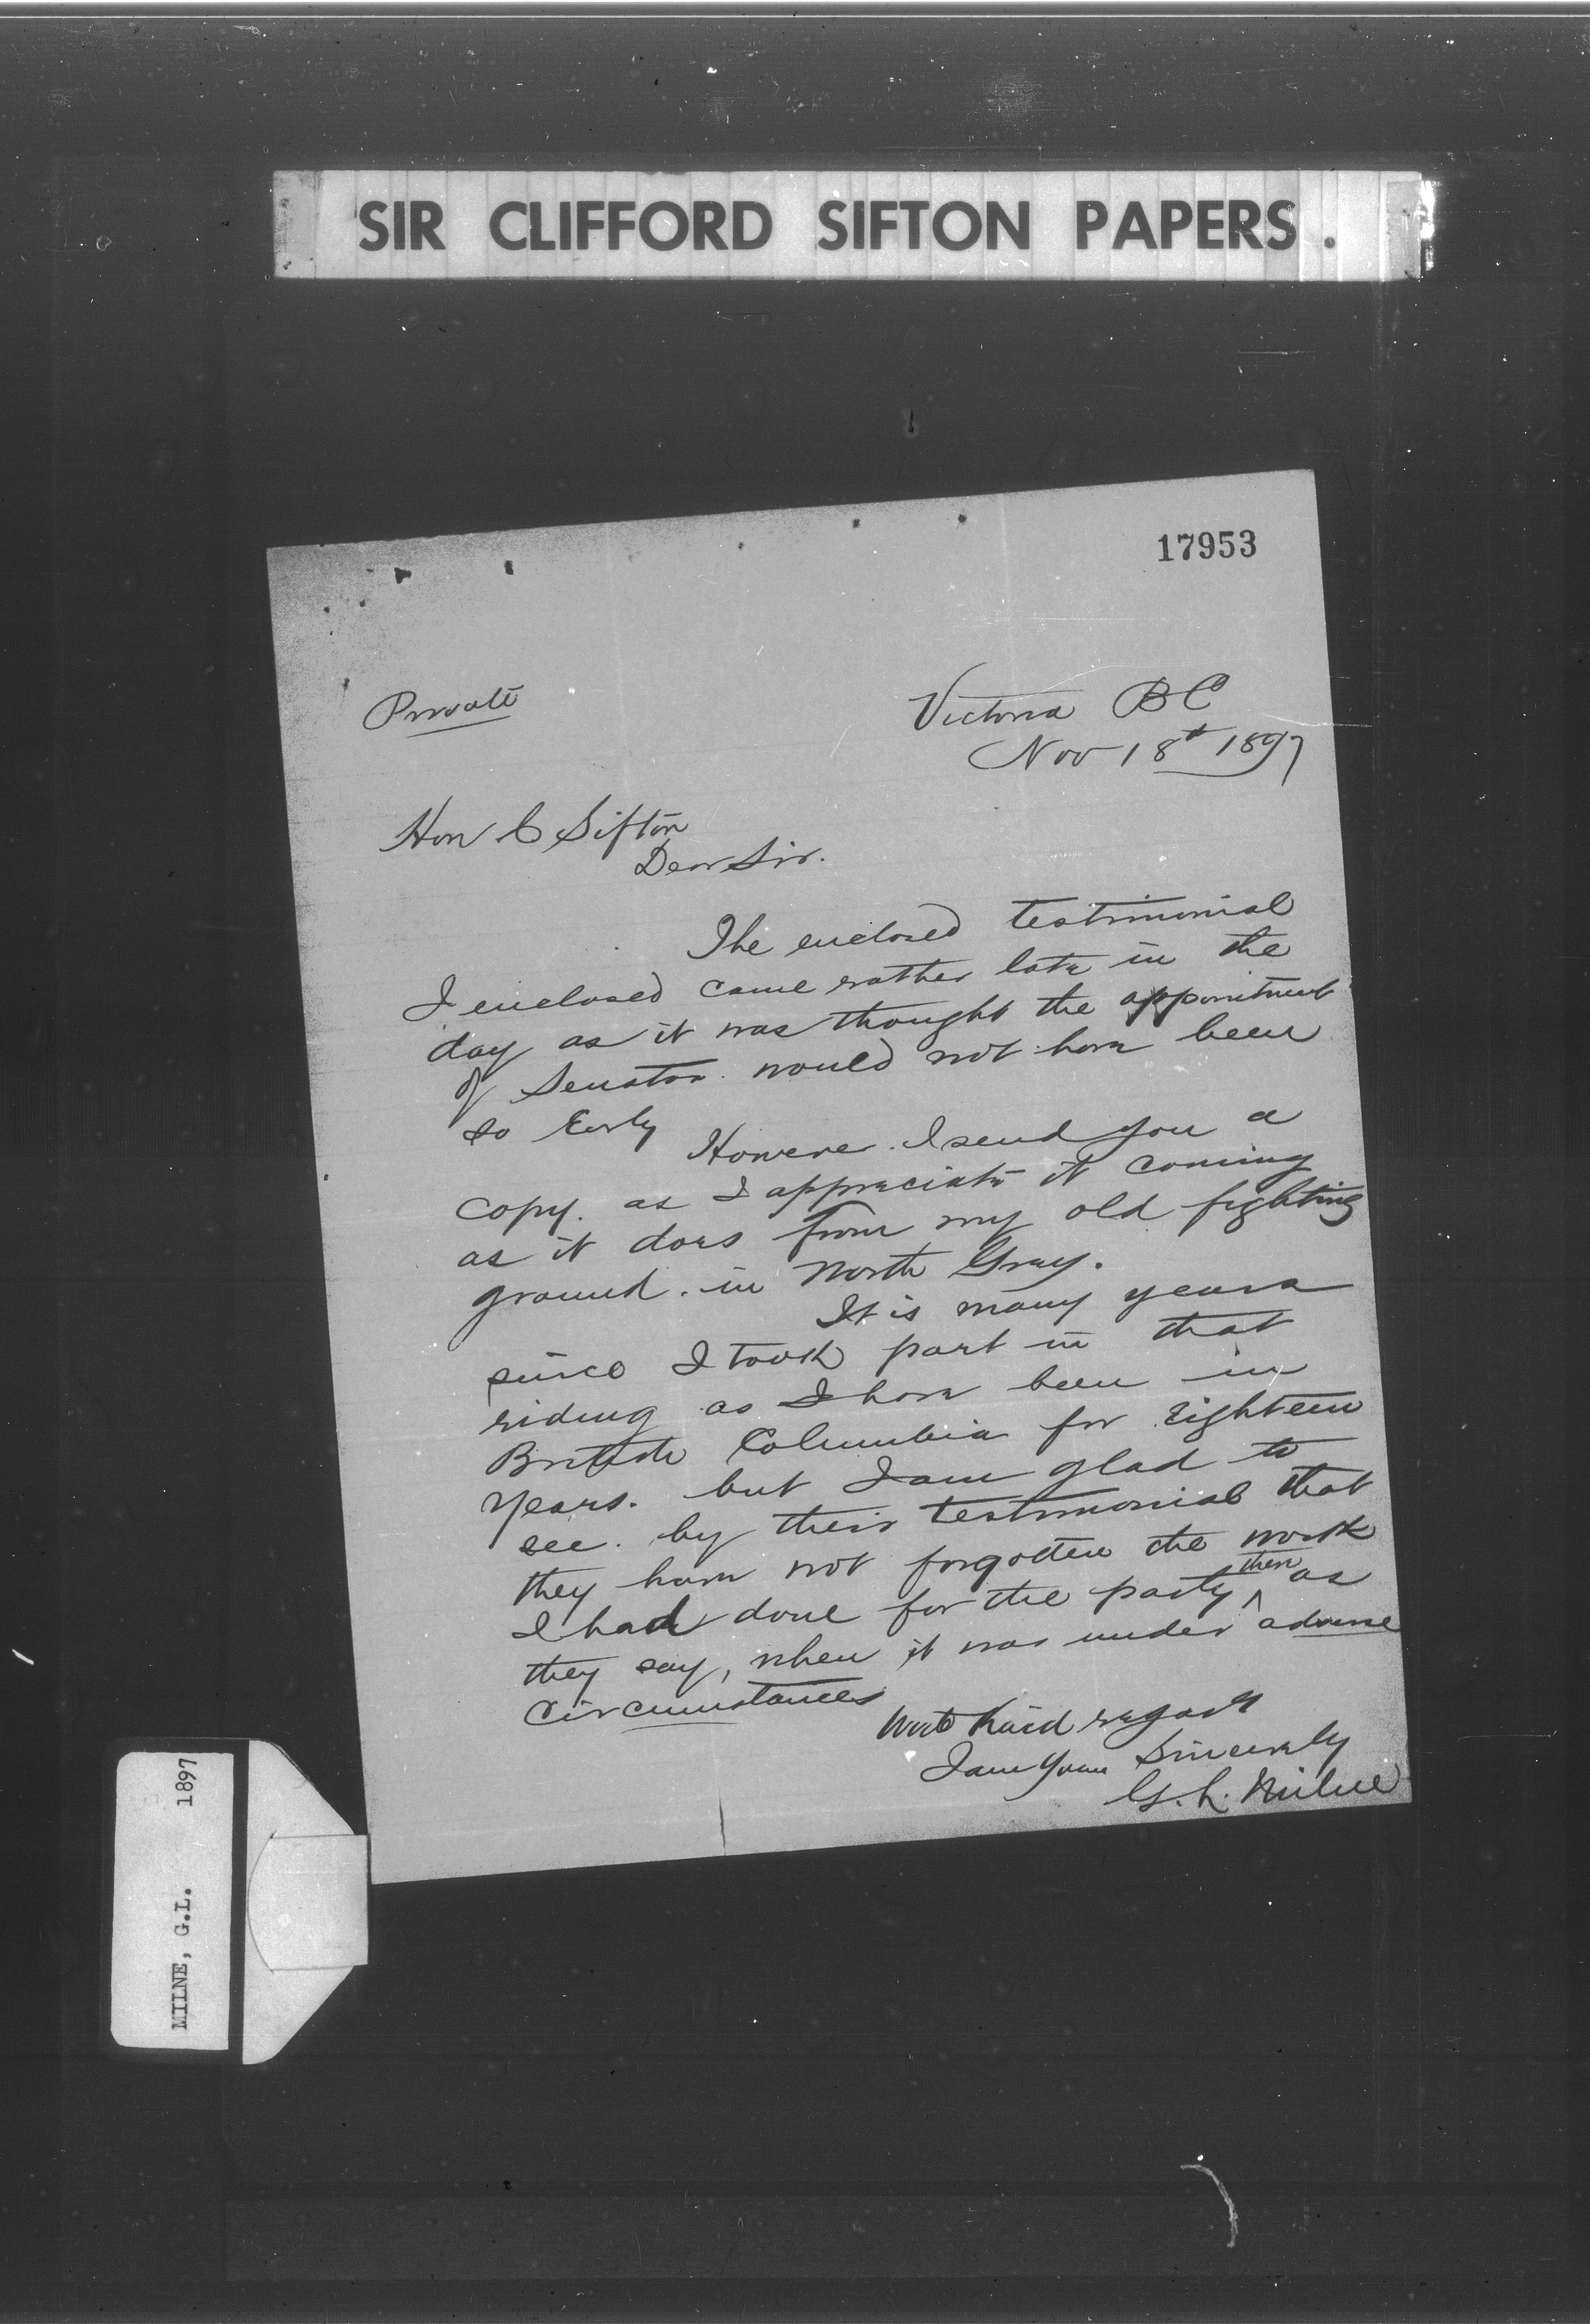 SIR CLIFFORD SIFTON PAPERS.
17953
Private
Victoria BC
Nov 18th 1897
Hon C Sifton
Dear Sir.
The enclosed testimonial
I enclosed came rather late in the
day as it was thought the appointment
of Senator would not have been
so Early
However. I send you a
copy. as I appreciate it coming
as it does from my old fighting
ground. in North Grey.
It is many years
since I took part in that
riding as I have been in
British Columbia for Eighteen
years. but I am glad to
see. by their testimonial that
they have not forgotten the work
I had done for the party ^ then as
they say, when it was under adverse
circumstances
With kind regards
I am Yours Sincerely
G. L. Milne
MILNE, G.L. 1897